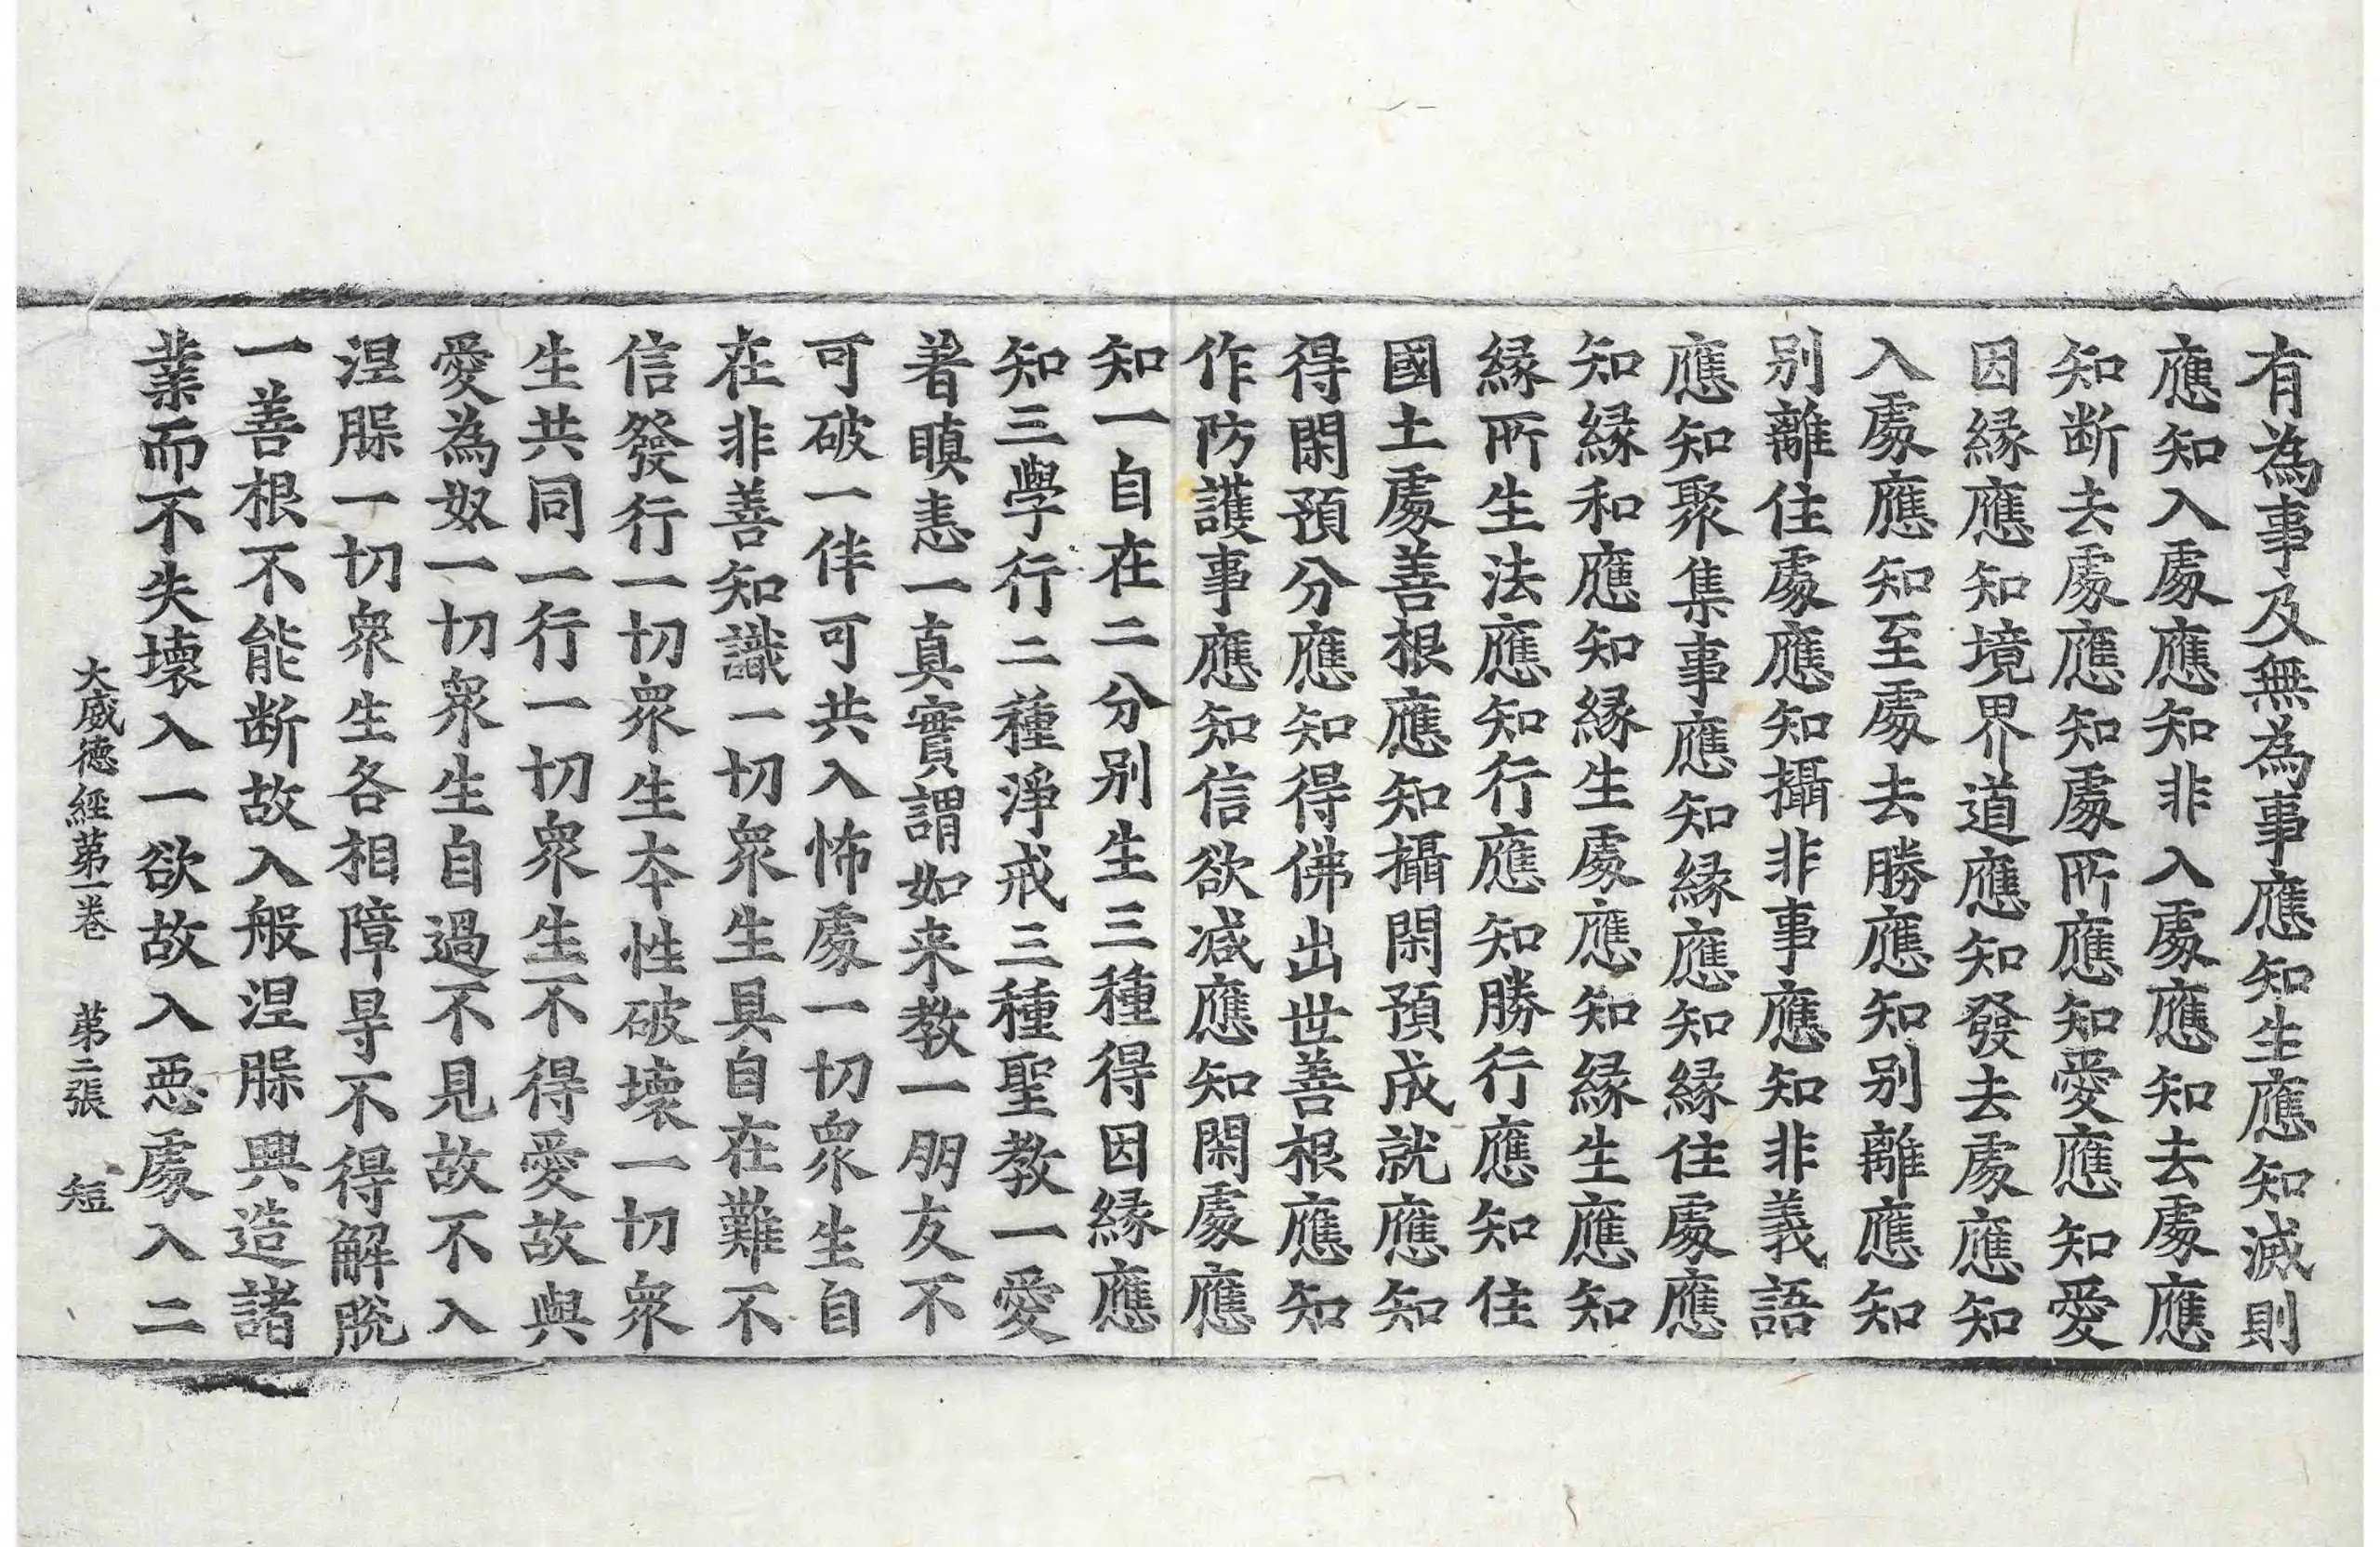 有為事及無為事應知生應知滅則
應知入處應知非入處應知去處應
知断去處應知處所應知愛應知愛
因縁應知境界道應知發去處應知
入處應知至處去勝應知别離應知
别離住處應知攝非事應知非義語
應知聚集事應知縁應知縁住處應
知縁和應知縁生處應知縁生應知
縁所生法應知行應知勝行應知住
國土處善根應知攝閑預成就應知
得閑預分應知得佛出世善根應知
作防護事應知信欲减應知閑處應
知一自在二分别生三種得因縁應
知三學行二種淨戒三種聖教一愛
著瞋恚一真實謂如来教一朋友不
可破一伴可共入怖處一切衆生自
在非善知識一切衆生具自在難不
信發行一切衆生本性破壊一切衆
生共同一行一切衆生不得愛故與
愛為奴一切衆生自過不見故不入
涅槃一切衆生各相障㝵不得解脱
一善根不能断故入般涅槃興造諸
業而不失壊入一欲故入惡處入二
大威德經第一卷　第二張　短